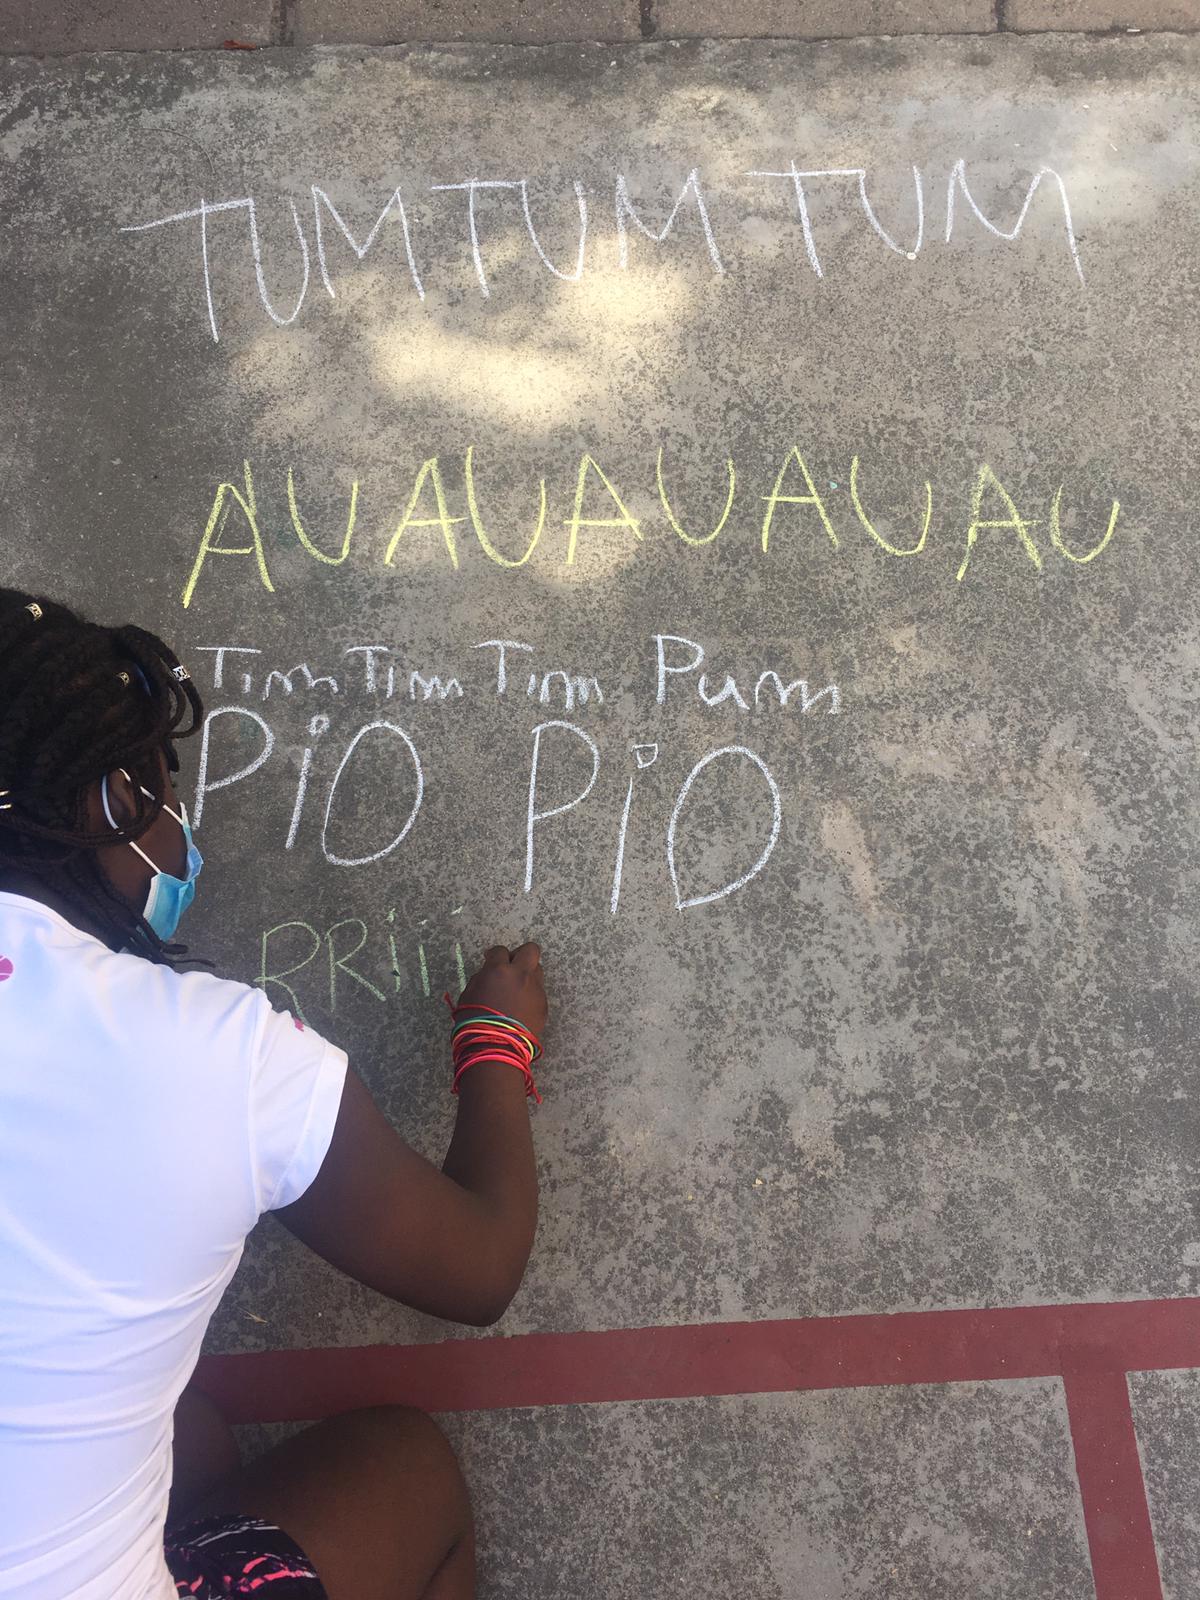 TUMTUM TUM
AUAUAUAUAU
Tim Tim Tim Pum
PiO PiO
RRiii